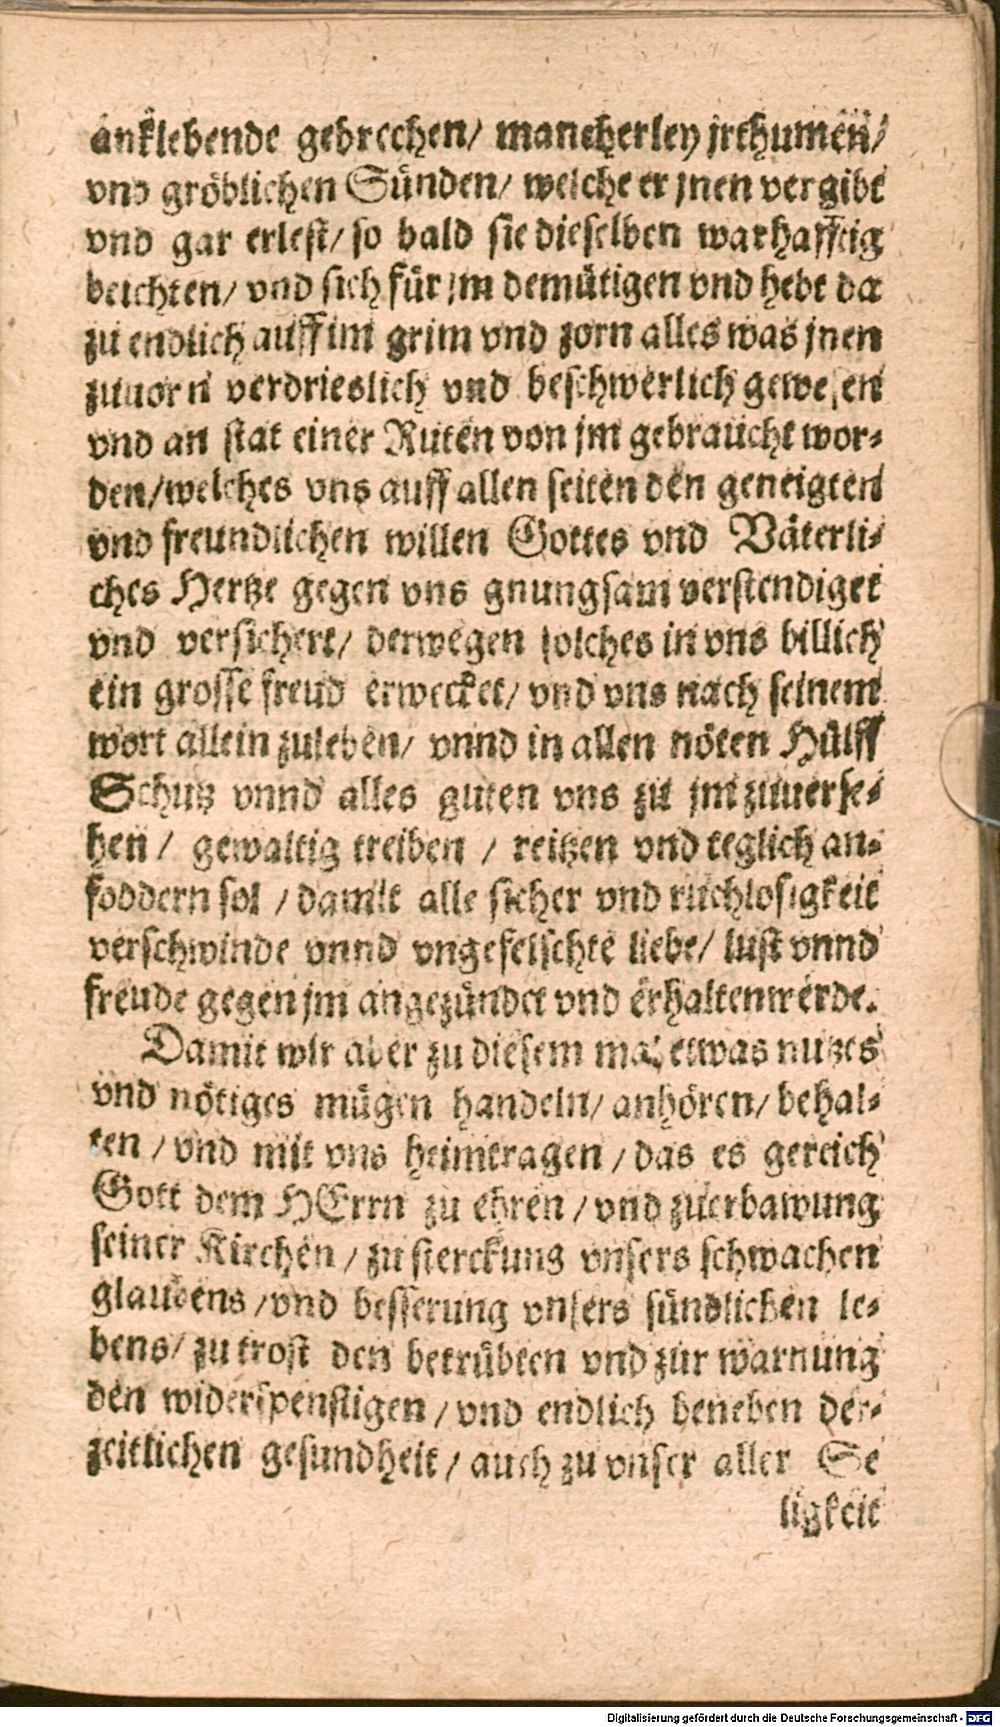 anklebende gebrechen/ mancherley jrthumen/
vnd gröblichen Sünden/ welche er jnen vergibt
vnd gar erlest/ so bald sie dieselben warhafftig
beichten/ vnd sich für jm demütigen vnd hebt da
zu endlich auff im grim vnd zorn alles was jnen
zuuorn verdrieslich vnd beschwerlich gewesen
vnd an stat einer Ruten von jm gebraucht wor-
den/welches vns auff allen seiten den geneigten
vnd freundlichen willen Gottes vnd Väterli-
ches Hertze gegen vns gnungsam verstendiget
vnd versichert/ derwegen solches in vns billich
ein grosse freud erwecket/ vnd vns nach seinem
wort allein zuleben/ vnnd in allen nöten Hülff
Schutz vnnd alles guten vns zu jm zuuerse-
hen / gewaltig treiben / reitzen vnd teglich an-
foddern sol / damit alle sicher vnd ruchlosigkeit
verschwinde vnnd vngefelschte liebe/ lust vnnd
freude gegen jm angezündet vnd erhalten werde.
Damit wir aber zu diesem mal etwas nutzes
vnd nötiges mügen handeln/ anhören/ behal-
ten / vnd mit vns heimtragen / das es gereich
Gott dem HErrn zu ehren / vnd zuerbawung
seiner Kirchen / zu sterckung vnsers schwachen
glaubens /vnd besserung vnsers sündlichen le-
bens/ zu trost den betrübten vnd zur warnung
den widerspenstigen / vnd endlich beneben der-
zeitlichen gesundheit / auch zu vnser aller Se
ligkeit
Digitalisierung gefördert durch die Deutsche Forschungsgemeinschaft - DFG